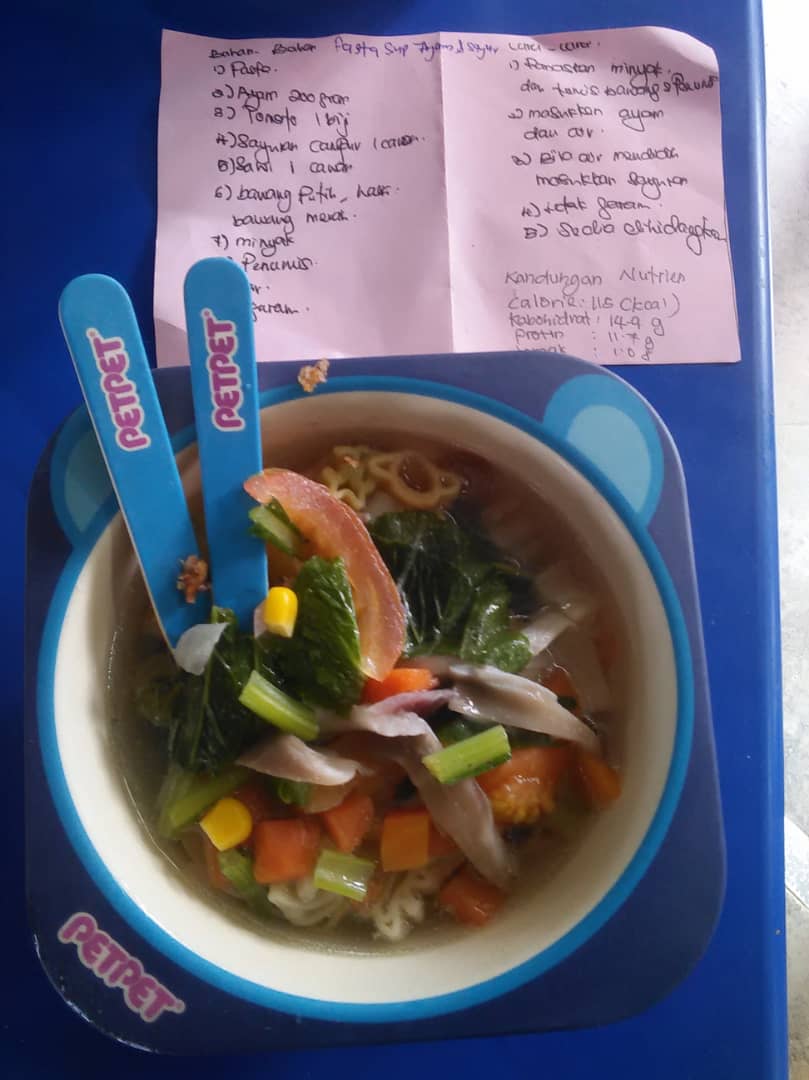 Bahan - Bahan Pasta Sup Ayam & Sayur
1) Pasta.
2) Ayam 200 gram
3) Tomato 1 biji
4) Sayuran Campur 1 cawan.
5) Sawi 1 cawan
6) bawang Putih, 
bawang merah.
7) minyak
Penumis.
garam.
1) Panaskan minyak.
dan tumis bawang & Penumis
2) masukkan ayam
dan air.
3) Bila air mendidih
masukkan sayuran
4) garam.
5) Sedia dihidangkan
Kandungan Nutrien
Calorie: 115 (kcal)
Kabohidrat: 14.9 g
Protin : 11.7 g
: 1.0 g
PETPET
PETPET
PETPET